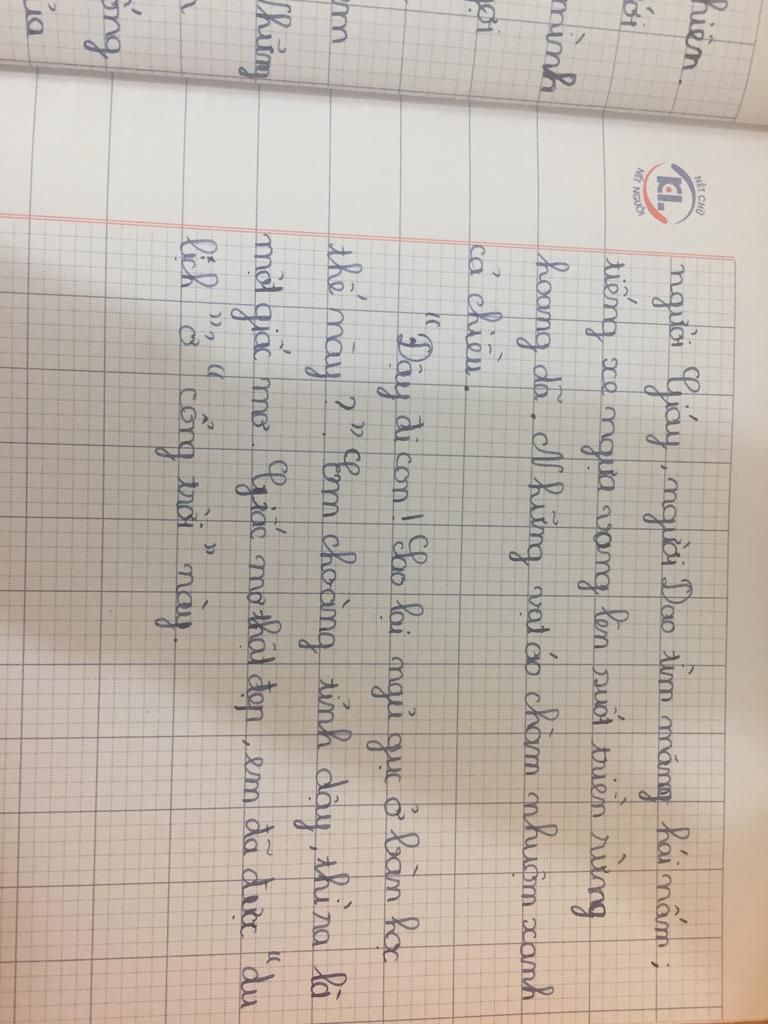 hiện.
ới
mình
gợi
em
Những
ống
của
NÉT CHỮ
KL
NẾT NGƯỜI
người Giáy, người Dao tìm măng hái nấm;
tiếng xe ngựa vang lên suốt triền rừng
hoang dã. Những vạt áo chàm nhuộm xanh
cả chiều.
"Dậy đi con! Sao lại ngủ gục ở bàn học
thế này?" Em choàng tỉnh dậy, thì ra là
một giấc mơ. Giấc mơ thật đẹp, em đã được "du
lịch", ở "cổng trời" này.